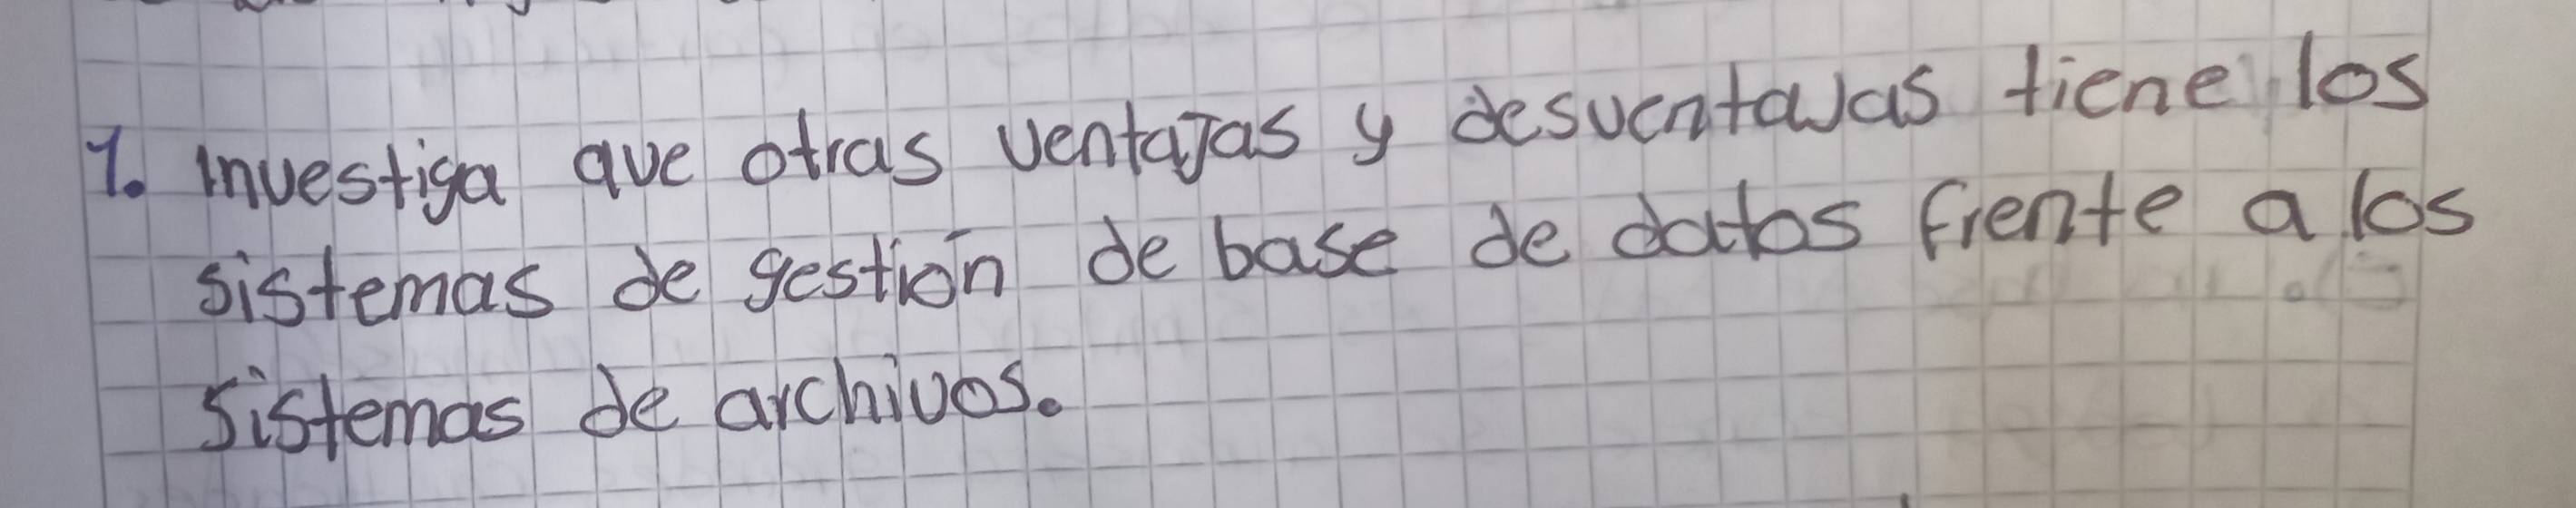 1. Investiga que otras ventajas y desventajas tiene los
sistemas de gestión de base de datos frente a los
sistemas de archivos.